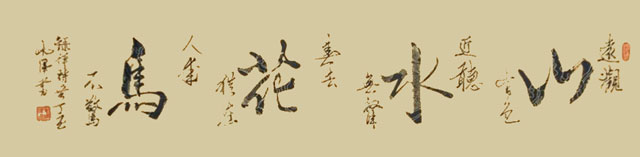 遠觀
山
有色
近聽
水
無聲
春去
花
猶在
人來
鳥
不驚
錄禪詩 丁亥
書